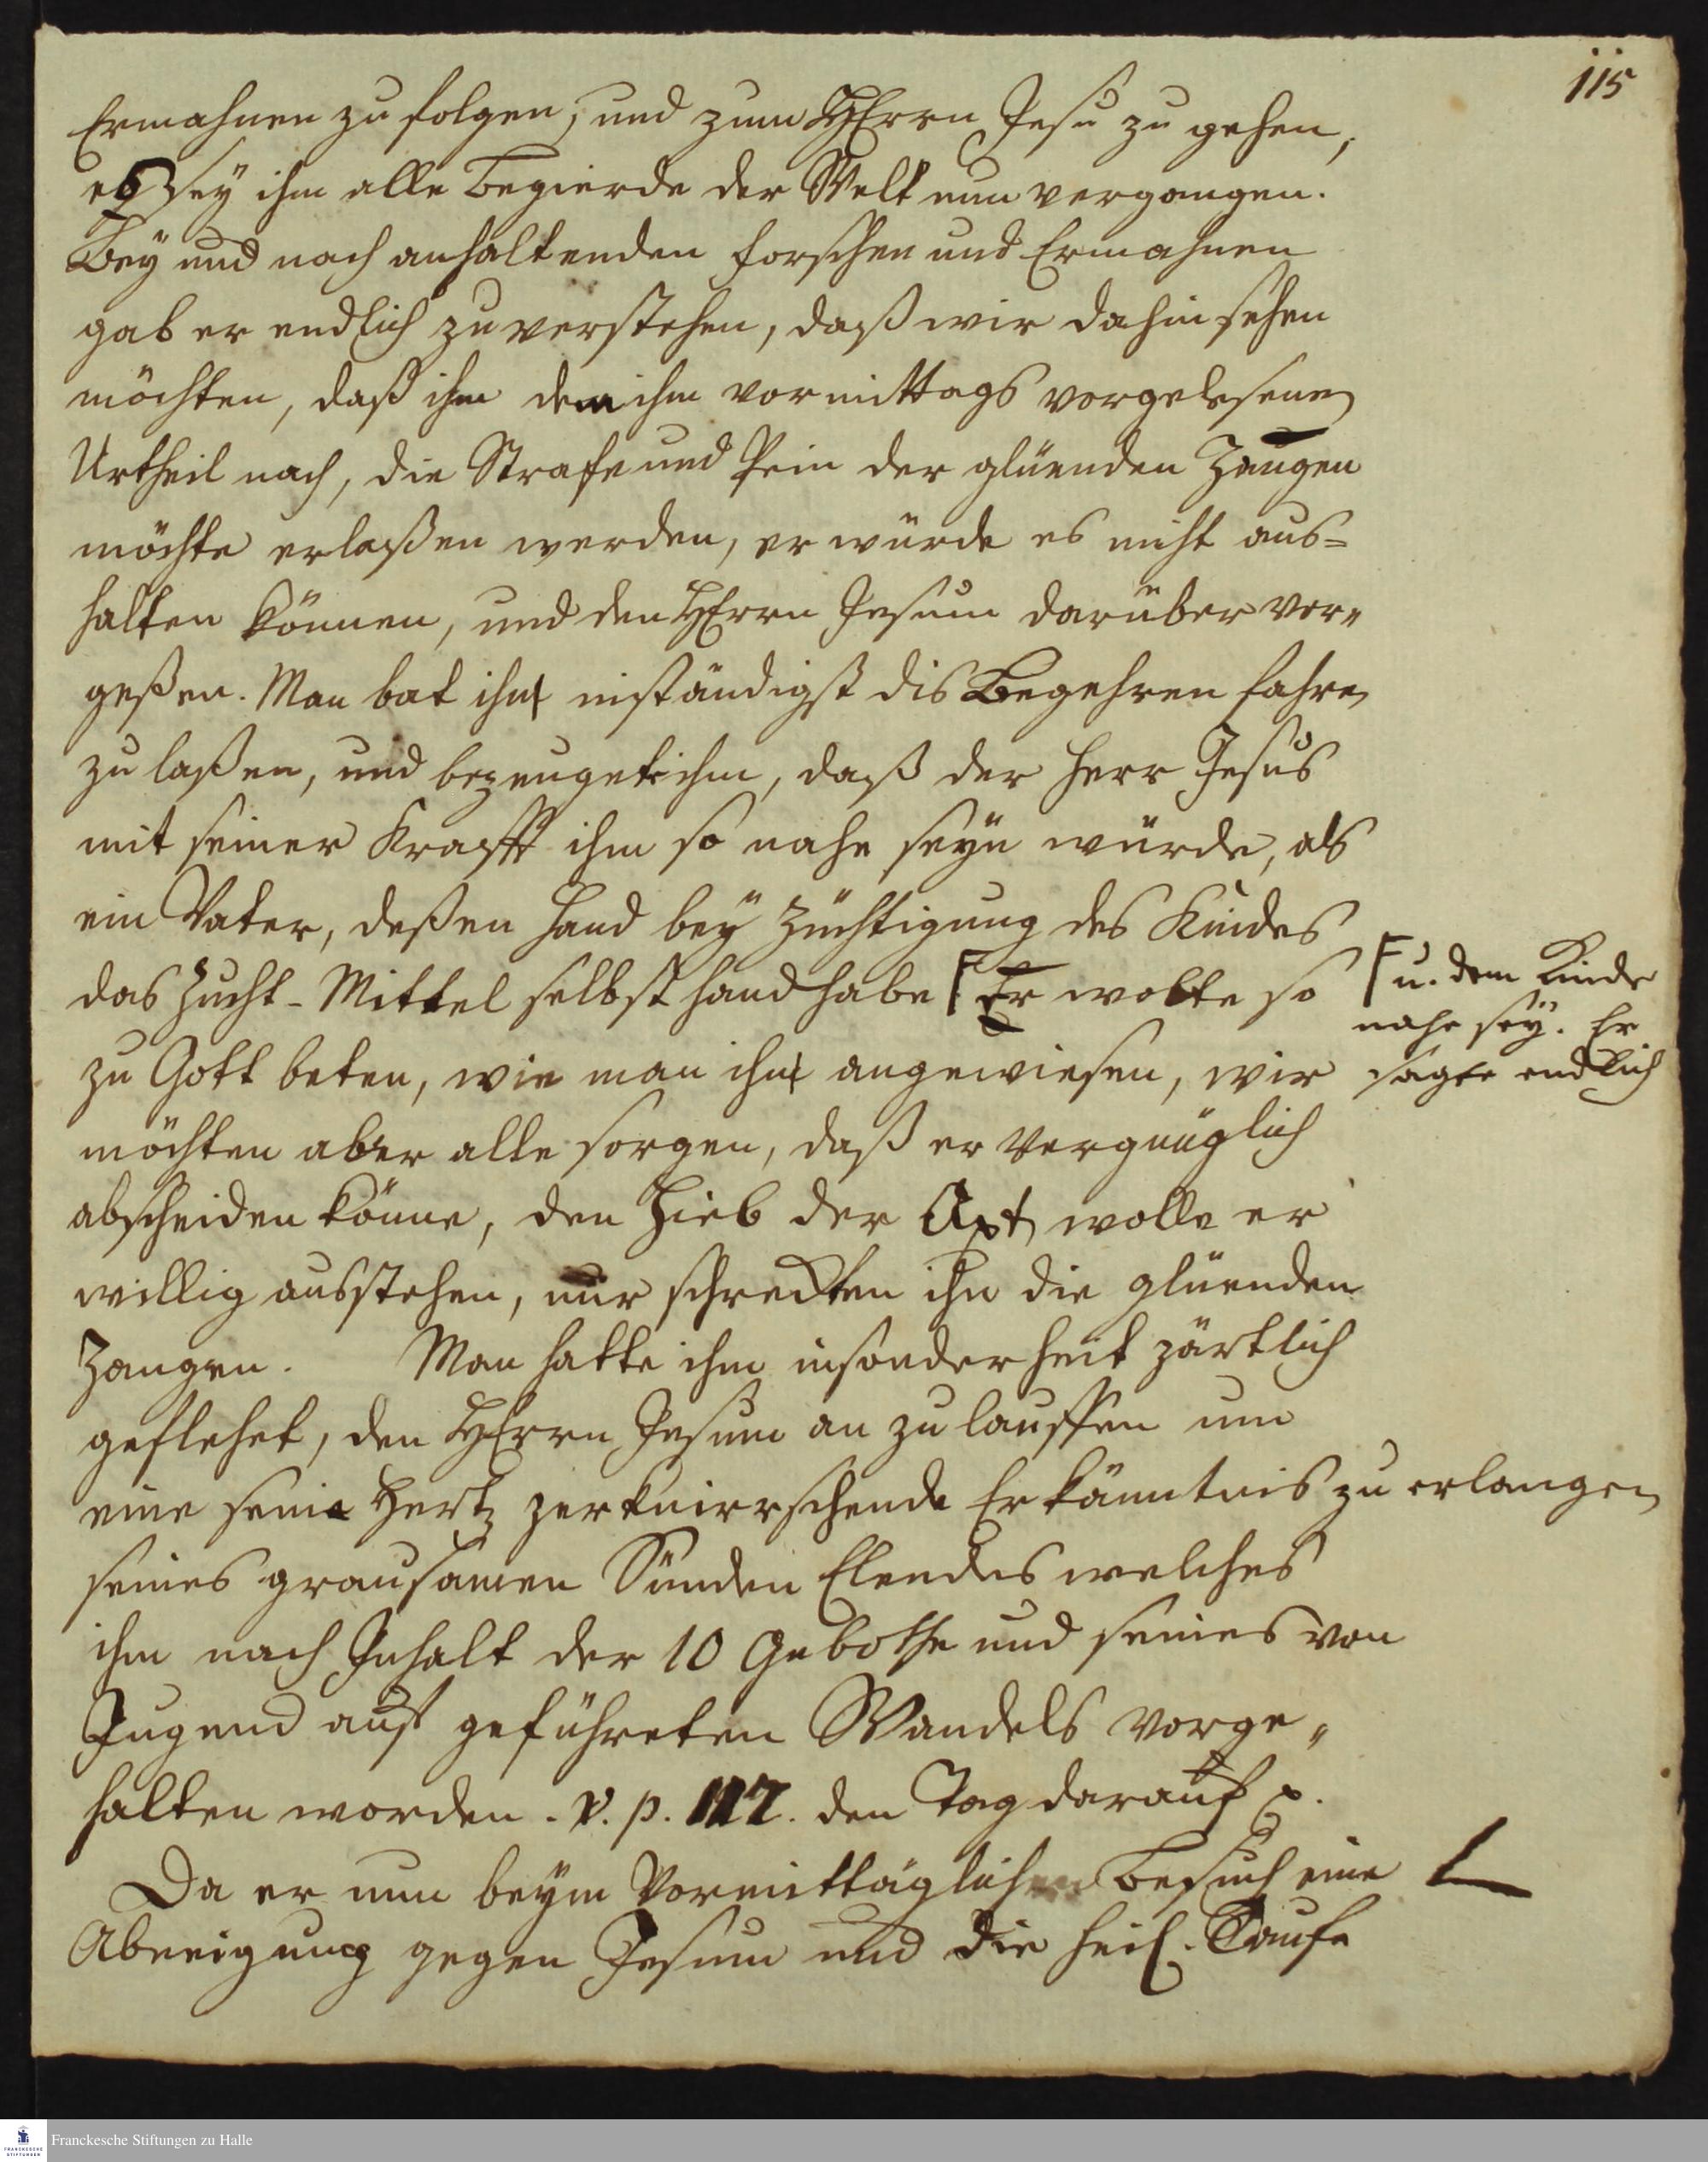 115
Ermahnen zu folgen, und zum HErrn Jesu zu gehen,
es sey ihm alle Begierde der Welt nun vergangen.
Bey und nach anhaltenden forschen und Ermahnen
gab er endlich zu verstehen, daß wir dahin sehen
möchten, daß ihm dem ihm vormittags vorgelesenen
Urtheil nach, die Strafe und Pein der glüenden Zangen
möchte erlaßen werden, er würde es nicht aus=
halten können, und den HErrn Jesum darüber ver„
geßen. Man bat ihn inständigst dis Begehren fahren
zu laßen, und bezeugete ihm, daß der Herr Jesus
mit seiner Krafft ihm so nahe seyn würde, als
ein Vater, deßen Hand bey Züchtigung des Kindes
das Zucht-Mittel selbst handhabe. Er wolte so
u. dem Kinde
nahe sey. Er
sagte endlich
zu Gott beten, wie man ihn angewiesen, wir
möchten aber alle sorgen, daß er vergnüglich
abscheiden könne, den Hieb der Axt wolle er
willig ausstehen, nur schreckten ihn die glüenden
Zangen. Man hatte ihm insonderheit zärtlich
geflehet, den HErrn Jesum an zu lauffen um
eine sein Hertz zerknirrschende Erkänntnis zu erlangen
seines grausamen Sünden Elendes welches
ihm nach Inhalt der 10 Gebothe und seines von
Jugend auf geführeten Wandels vorge„
halten worden. v. p. 117. den Tag darauf
Da er nun beym Vormittäglichen Besuch eine
Abneigung gegen Jesum und die heil. Taufe
Franckesche Stiftungen zu Halle